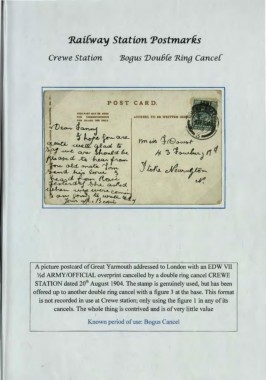 Railway Station Postmarks
Crewe Station Bogus Double Ring Cancel
POST CARD.
Dear Fanny
I hope you are
quite well glad to
if we are should be
pleased to hear from
you old mate
send
heard from
yesterday she asked
when
Miss F Daunt
Stoke Newington
N.
A picture postcard of Great Yarmouth addressed to London with an EDW VII
½d ARMY/OFFICIAL overprint cancelled by a double ring cancel CREWE
STATION dated 20th August 1904. The stamp is genuinely used, but has been
offered up to another double ring cancel with a figure 3 at the base. This format
is not recorded in use at Crewe station; only using the figure 1 in any of its
cancels. The whole thing is contrived and is of very little value
Known period of use: Bogus Cancel